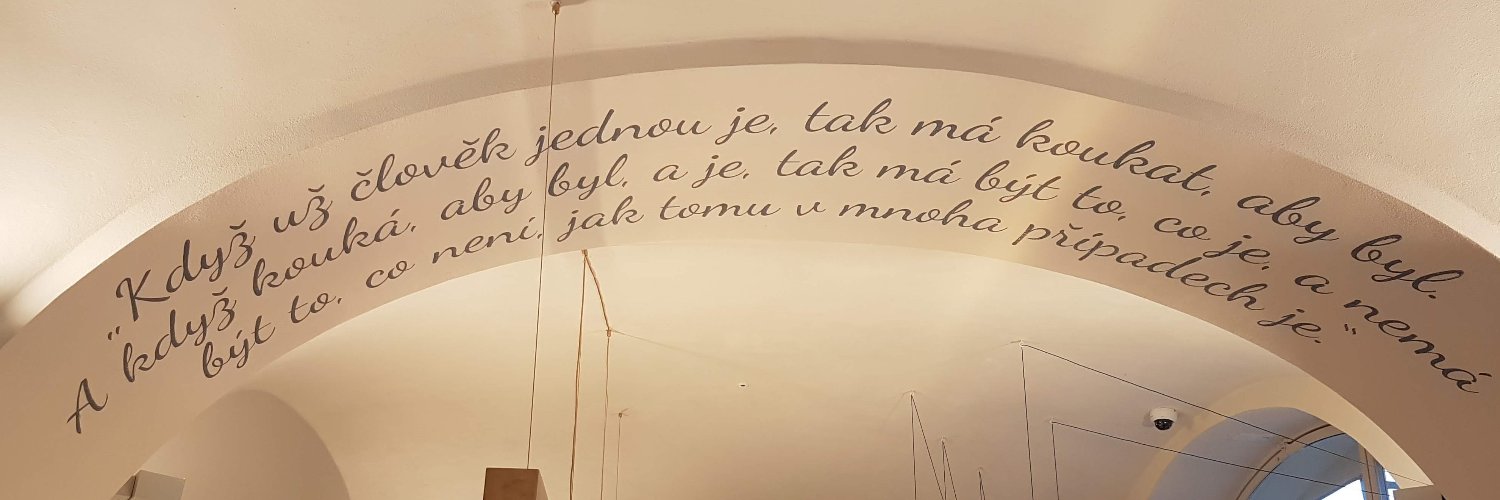 „Když už člověk jednou je, tak má koukat, aby byl.
A když kouká, aby byl, a je, tak má být to, co je, a nemá
být to, co není, jak tomu v mnoha případech je.“